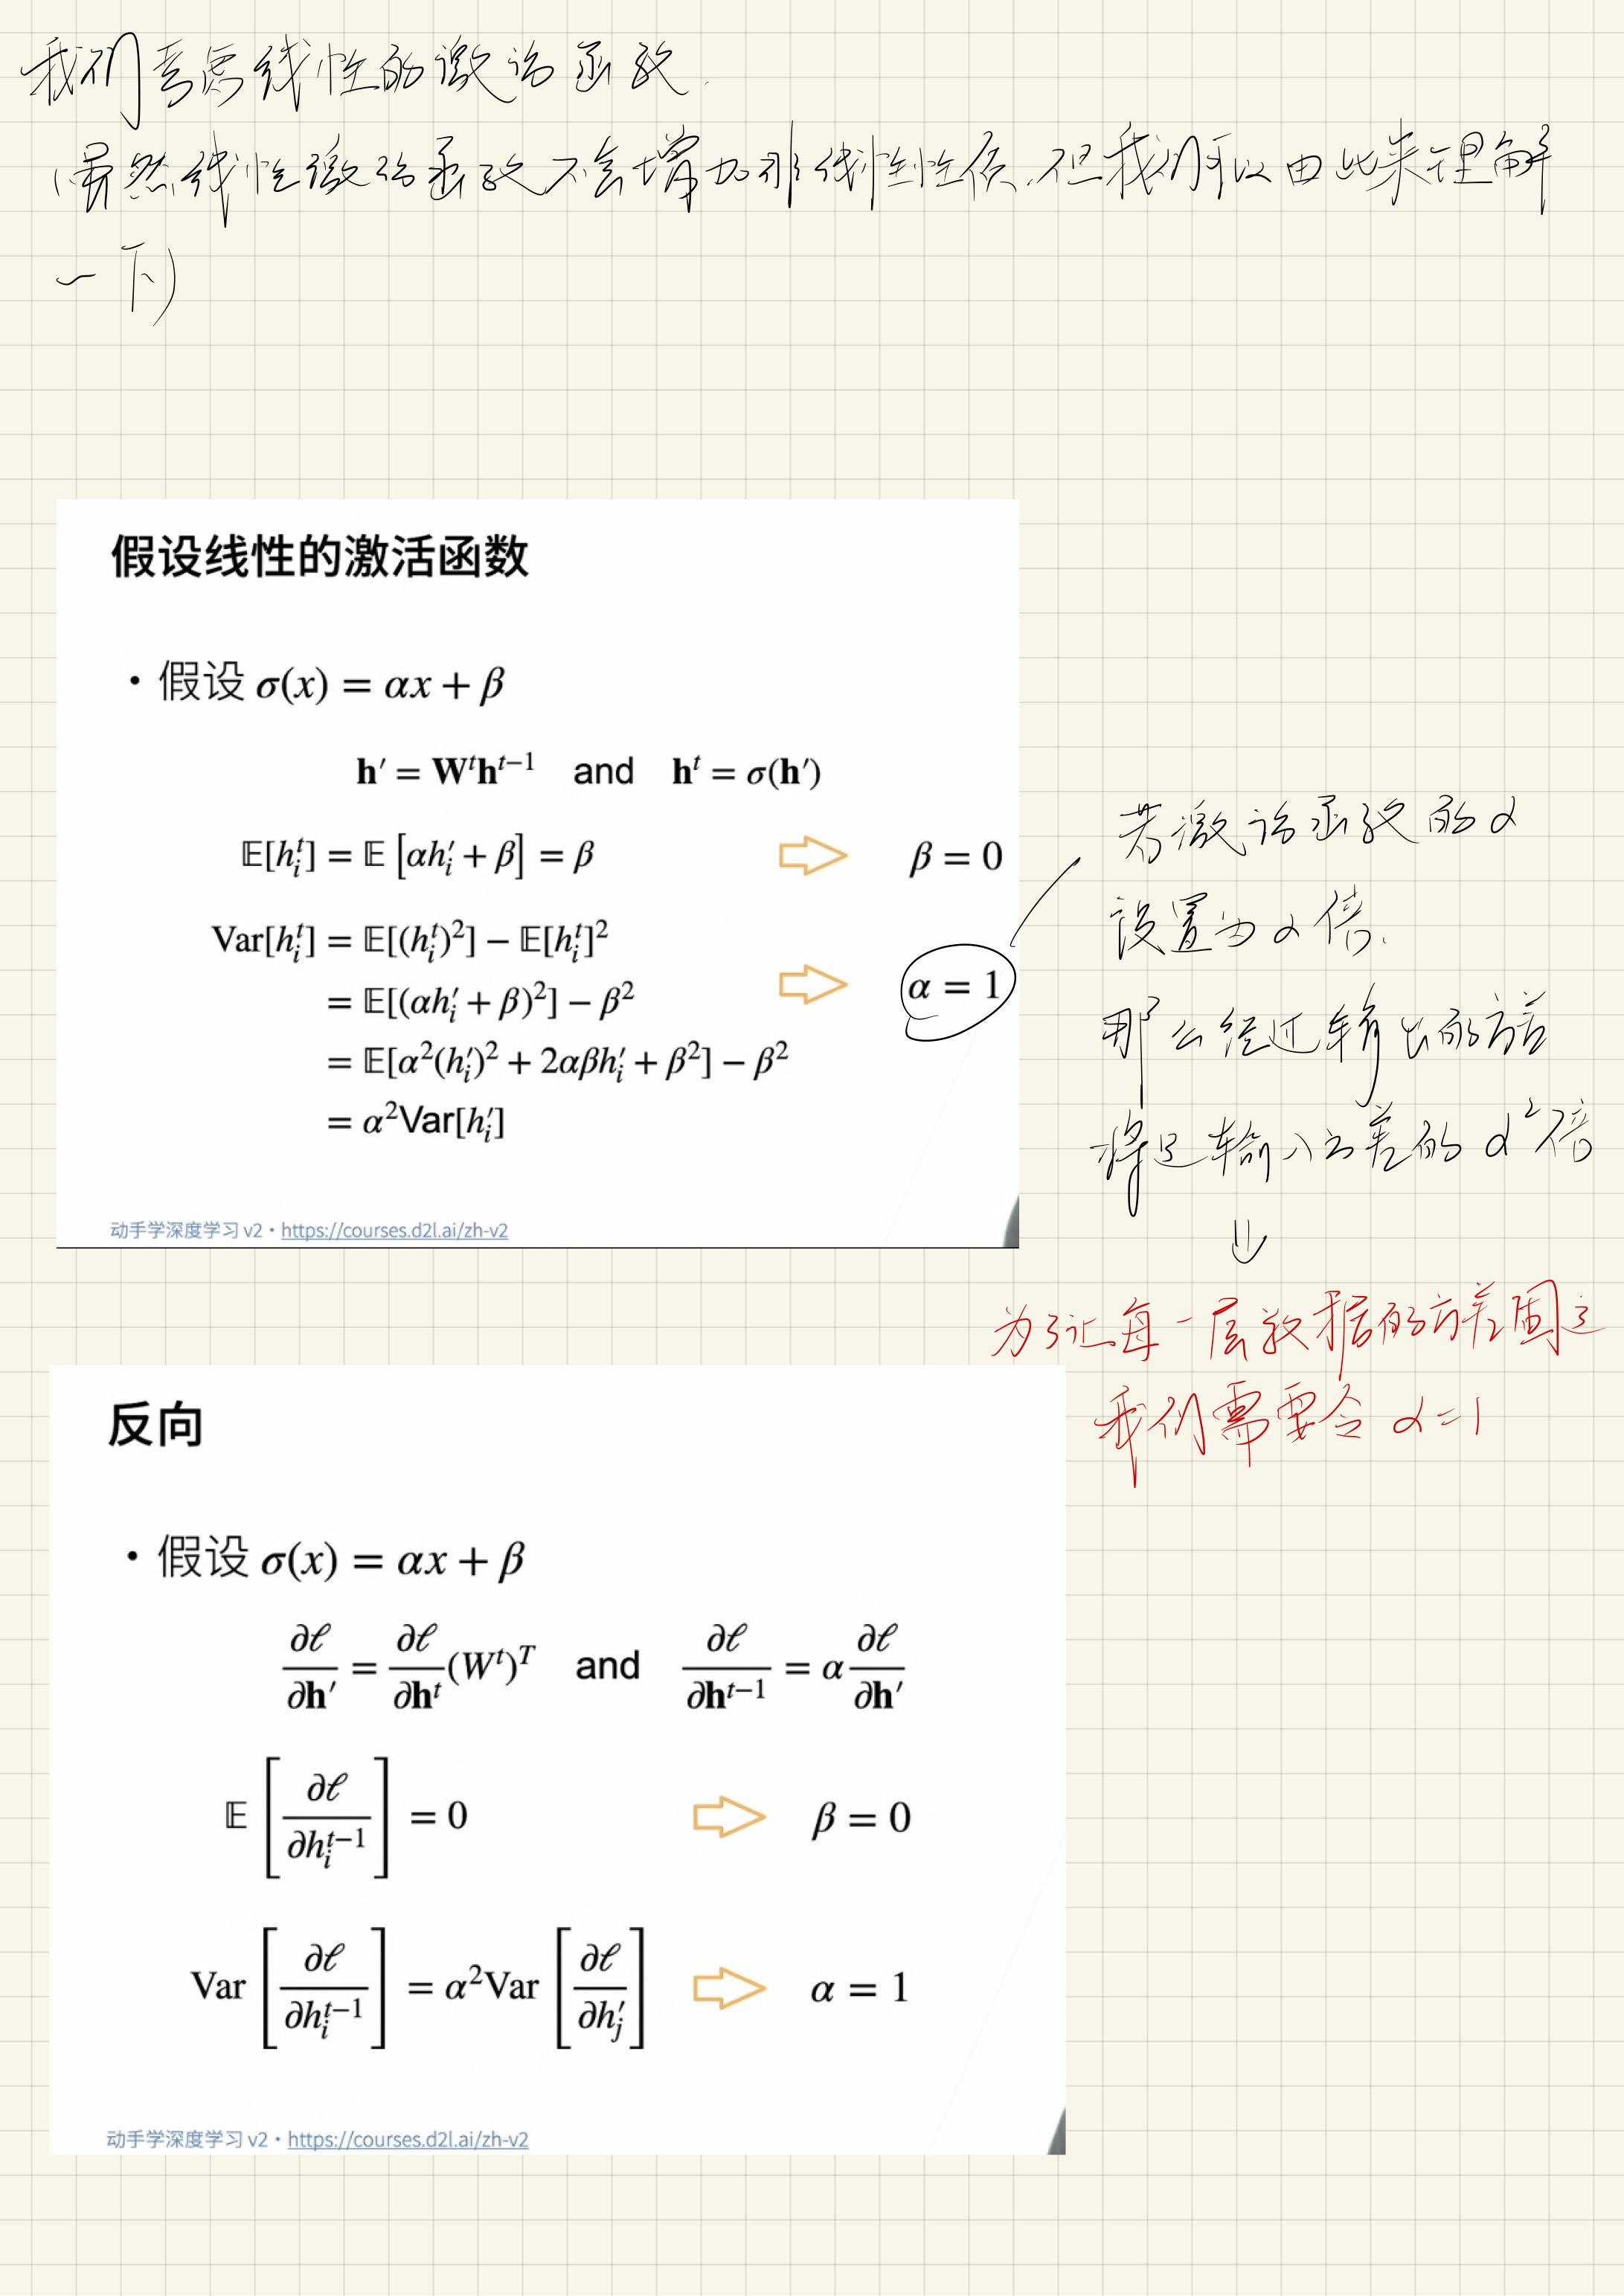 我们考虑线性的激活函数.
(虽然线性激活函数不会增加非线性性质,但我们可以由此来理解
一下)
假设线性的激活函数
• 假设 σ(x) = αx + β
h′ = Wᵗhᵗ⁻¹ and hᵗ = σ(h′)
𝔼[hᵢᵗ] = 𝔼[αhᵢ′ + β] = β ⇨ β = 0
Var[hᵢᵗ] = 𝔼[(hᵢᵗ)²] − 𝔼[hᵢᵗ]²
= 𝔼[(αhᵢ′ + β)²] − β² ⇨ α = 1
= 𝔼[α²(hᵢ′)² + 2αβhᵢ′ + β²] − β²
= α²Var[hᵢ′]
动手学深度学习 v2 • https://courses.d2l.ai/zh-v2
若激活函数的α
设置为α倍.
那么经过输出的方差
将是输入方差的α²倍
⇓
为了让每一层数据的方差固定
我们需要令 α=1
反向
• 假设 σ(x) = αx + β
∂ℓ/∂h′ = ∂ℓ/∂hᵗ (Wᵗ)ᵀ and ∂ℓ/∂hᵗ⁻¹ = α ∂ℓ/∂h′
𝔼[∂ℓ/∂hᵢᵗ⁻¹] = 0 ⇨ β = 0
Var[∂ℓ/∂hᵢᵗ⁻¹] = α²Var[∂ℓ/∂hⱼ′] ⇨ α = 1
动手学深度学习 v2 • https://courses.d2l.ai/zh-v2